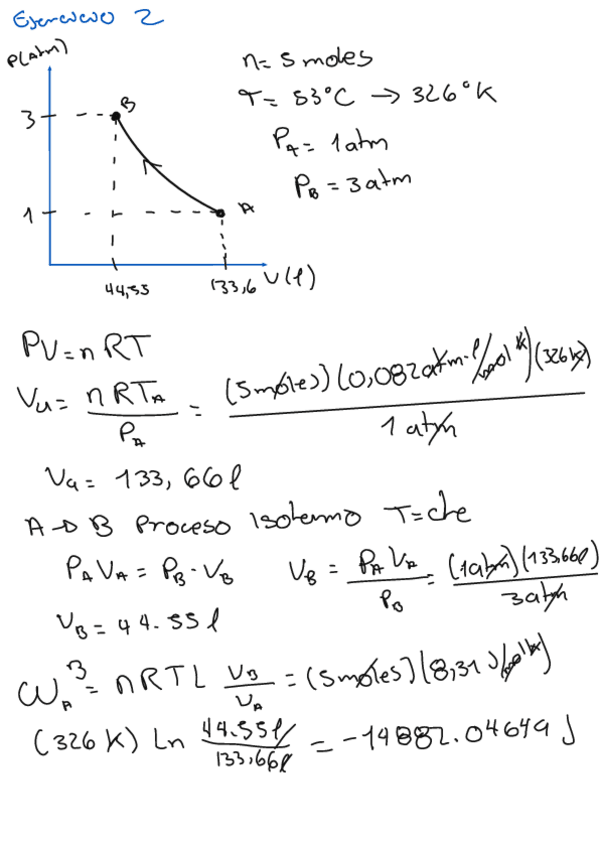 Ejercicio 2
P(Atm)
n= 5 moles
T= 53°C → 326°K
P_A= 1atm
P_B = 3atm
3
B
1
A
44,55
133,6
V(l)
PV=nRT
Va= nRT_A / P_A = (5moles)(0,082atm·l/mol k)(326k) / 1 atm
Va= 133,66l
A→B Proceso Isotermo T=cte
P_A V_A = P_B · V_B
V_B = P_A V_A / P_B = (1atm)(133,66l) / 3atm
V_B= 44.55l
W_A^B = nRTL V_B / V_A = (5moles)(8,31 J/mol k)
(326 K) Ln 44.55l / 133,66l = -14882.04649 J